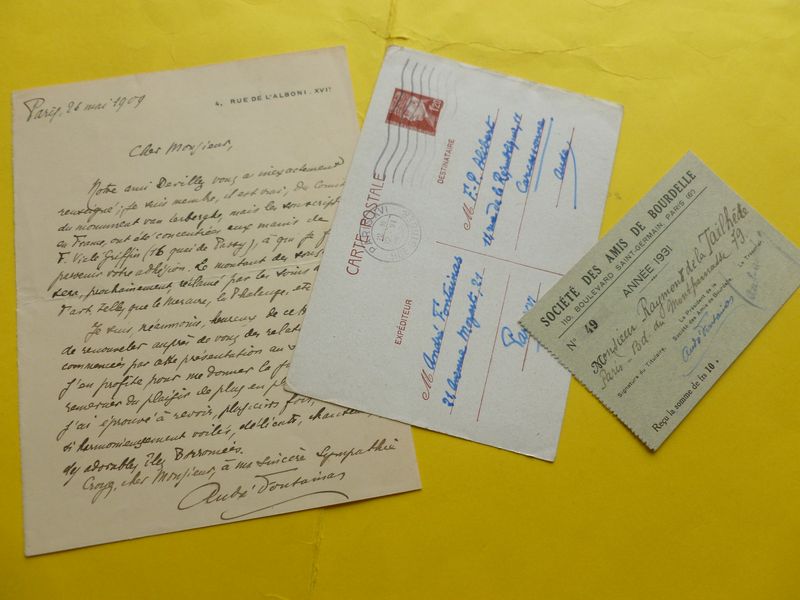 4, RUE DE L'ALBONI. XVIe
Paris, 26 mai 1909
Cher Monsieur,
Notre ami Davillez vous a inexactement
renseigné ; je suis membre, il est vrai, du Comit
du monument van Lerberghe, mais les souscript
en France, ont été concentrées aux mains de
F. Vielé-Griffin (16 quai de Passy), à qui je f
parvenir votre adhésion. Le montant des sous
sera, prochainement réclamé par les soins d
d'art, telles que le Mercure, la Phalange, etc
Je suis, néanmoins, heureux de ce
de renouveler auprès de vous des relat
commencées par cette présentation au
j'en profite pour me donner la
remercier du plaisir de plus en pl
j'ai éprouvé à revoir, plusieurs fois,
si harmonieusement voilés, délicats, chanteu
des adorables Iles Borromées.
Croyez, cher Monsieur, à ma sincère sympathie
André Fontainas
CARTE POSTALE
DESTINATAIRE
M. J-P. Alibert
14 rue de la République, 14
Carcassonne
Aude
PARIS XVI
EXPÉDITEUR
M. André Fontainas
21 Avenue Mozart, 21
Paris
SOCIÉTÉ DES AMIS DE BOURDELLE
110, BOULEVARD SAINT-GERMAIN, PARIS (6e)
ANNÉE 1931
No 49
Monsieur Raymond de la Tailhède
Paris - Bd. du Montparnasse 79.
Signature du Titulaire,
Le Président de la
Société des Amis de Bourdelle
André Fontainas
Le Trésorier
Reçu la somme de frs 10.